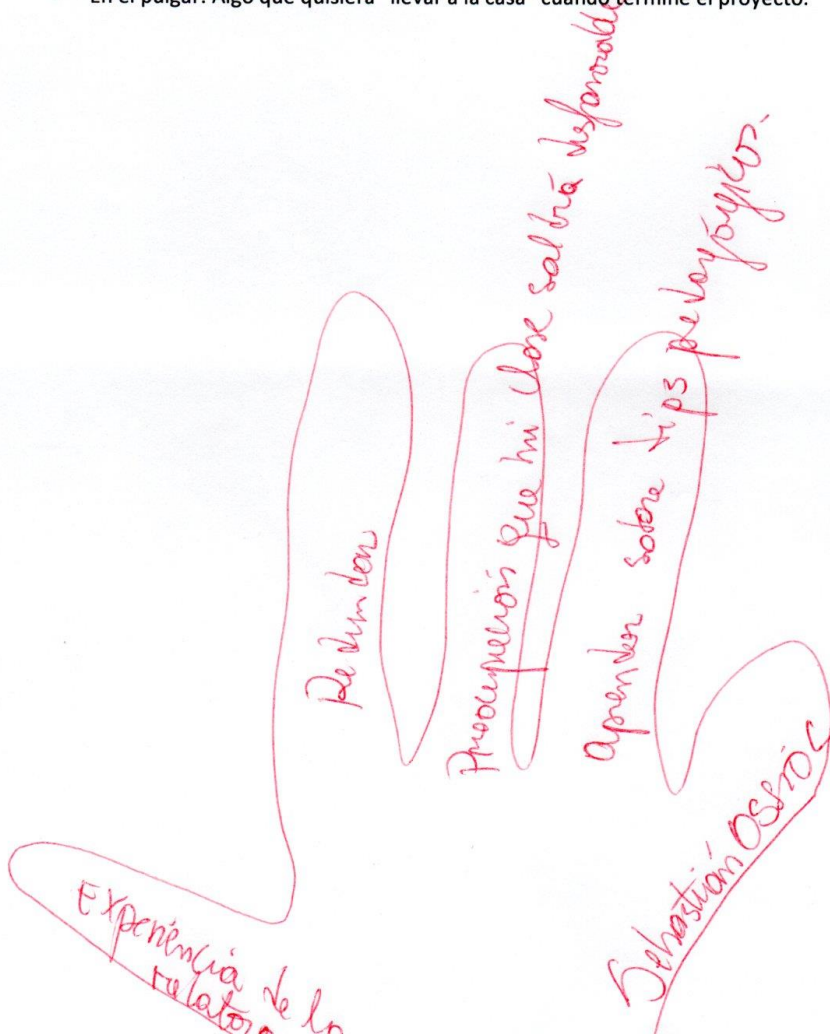 En el pulgar: Algo que quisiera "llevar a la casa" cuando termine el proyecto.
Experiencia de lo
relator
Redundar
Preocupación que mi clase saldría desfavorable
aprender sobre tips pedagógicos.
Sebastián Ossio C